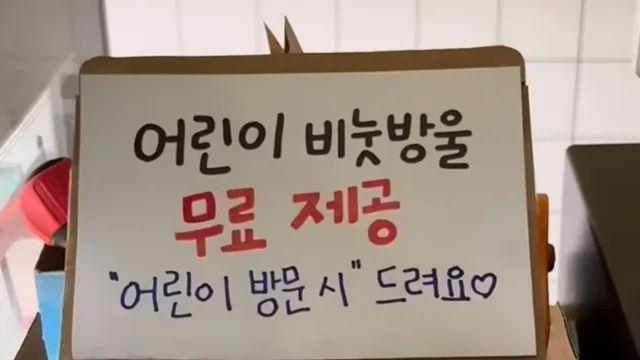 어린이 비눗방울
무료 제공
"어린이 방문 시" 드려요♡